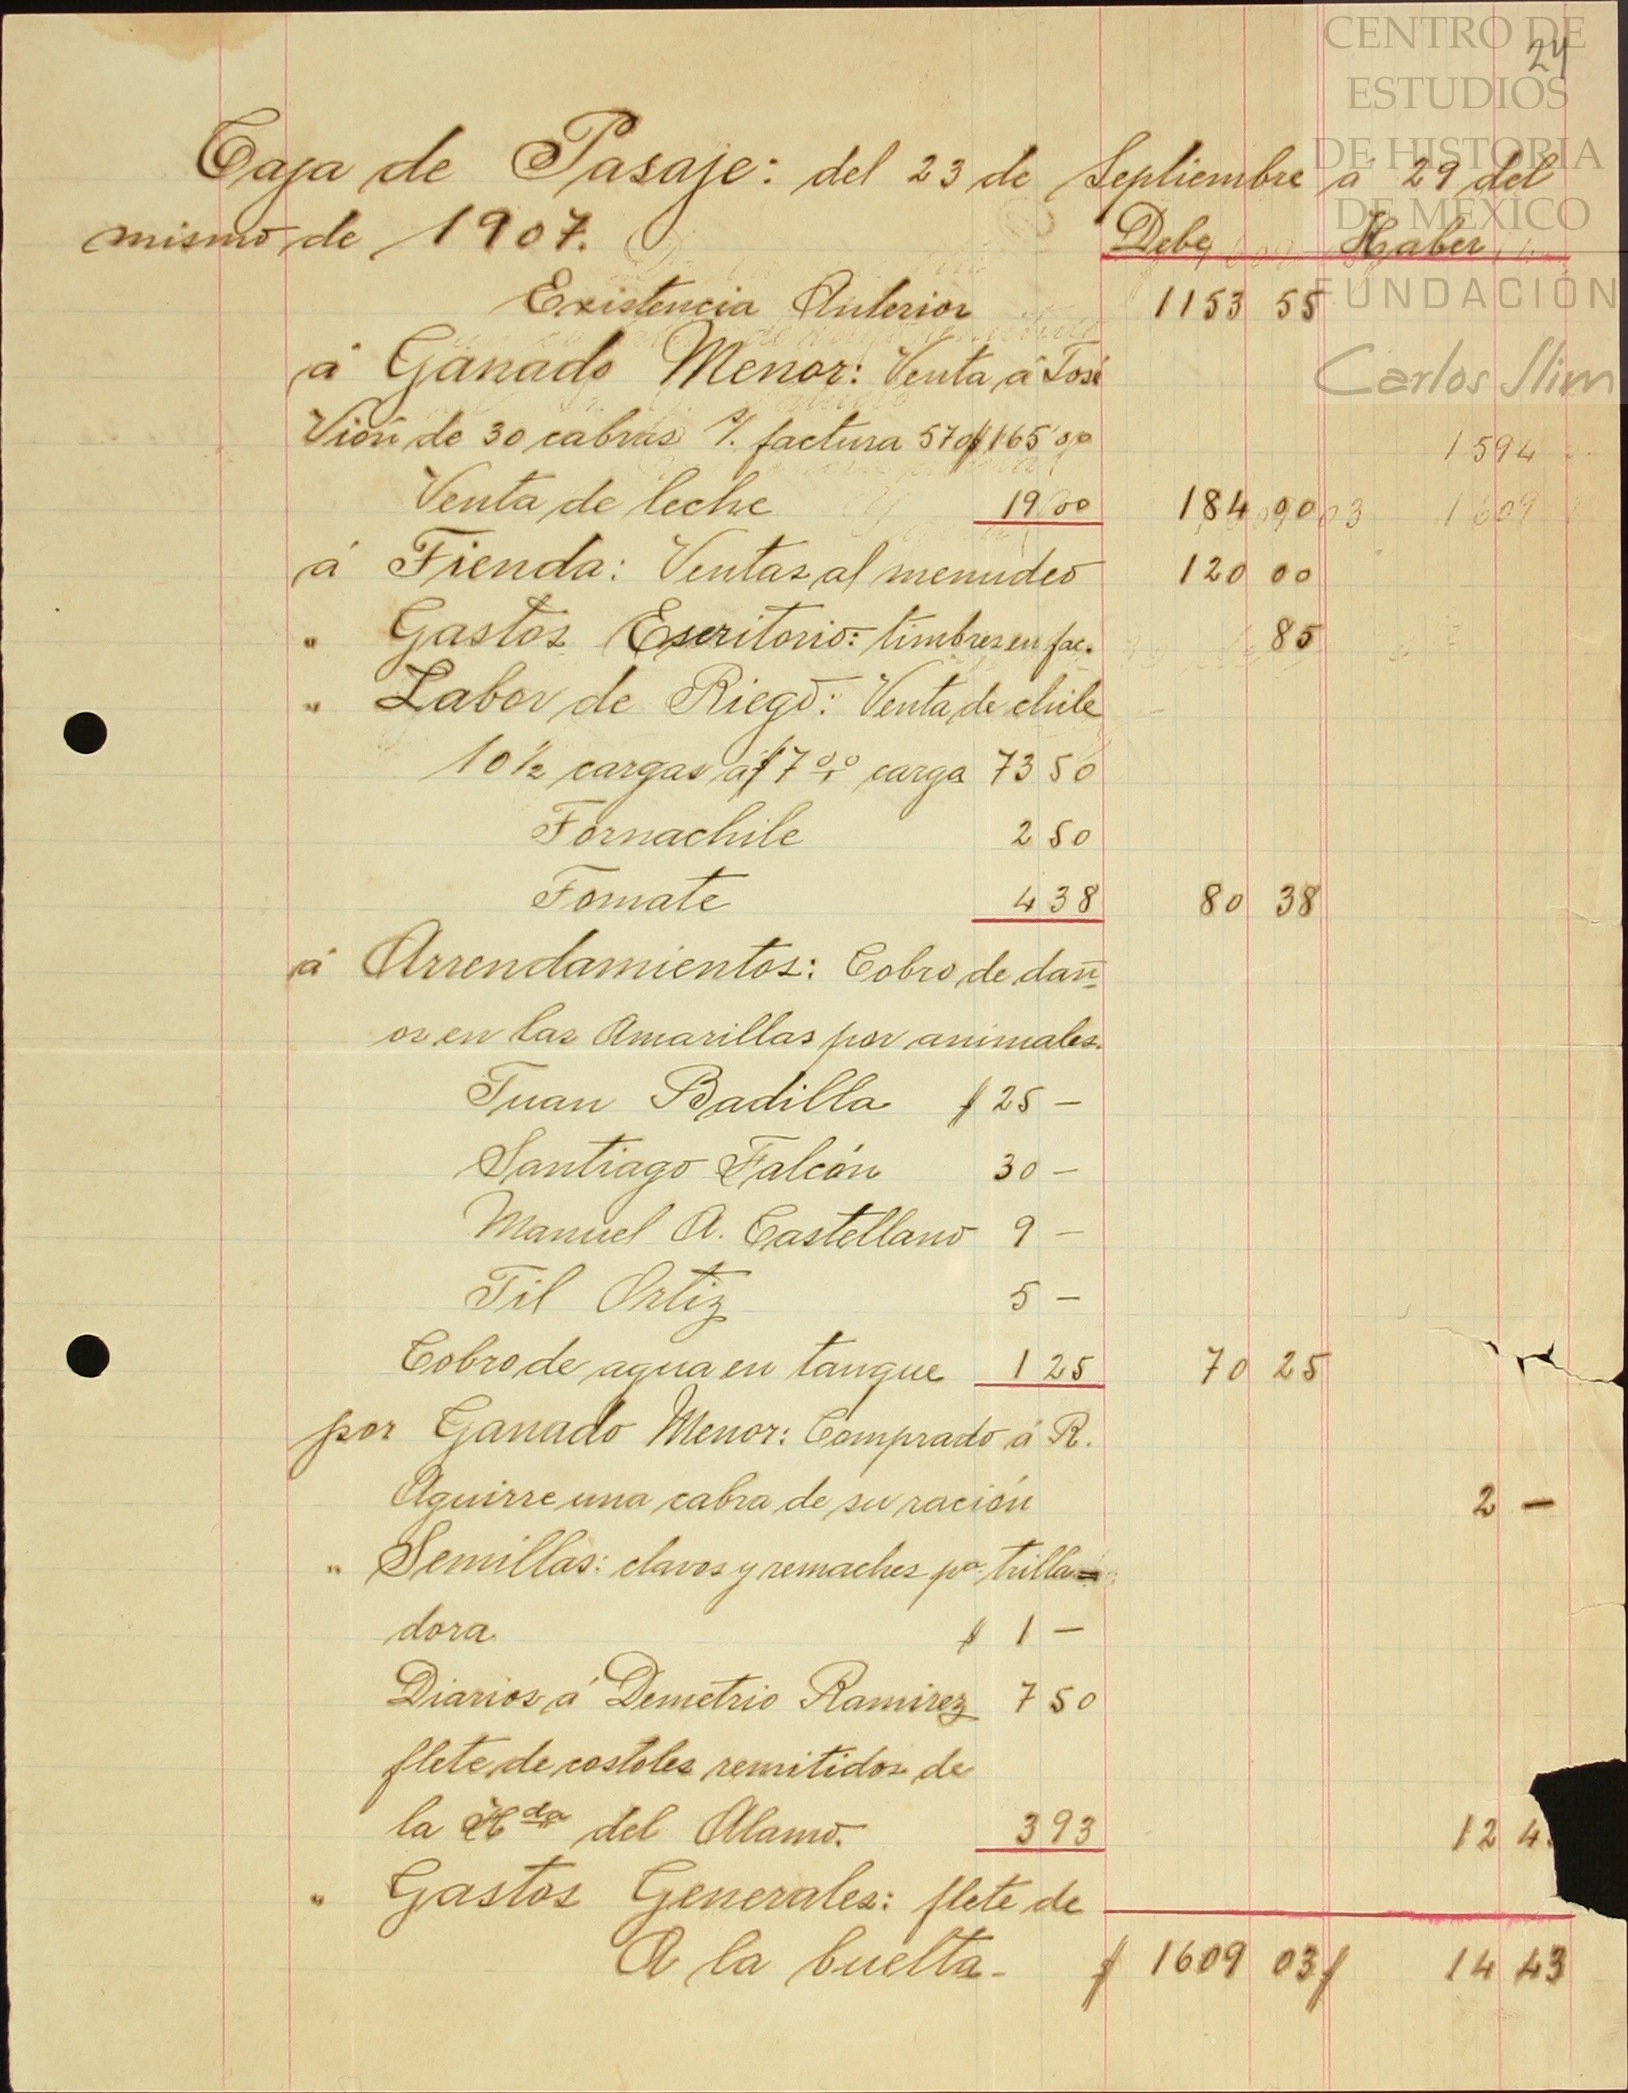 24
CENTRO DE
ESTUDIOS
DE HISTORIA
DE MÉXICO
FUNDACIÓN
Carlos Slim
Caja de Pasaje: del 23 de Septiembre á 29 del
mismo de 1907. Debe Haber
Existencia Anterior 1153 55
á Ganado Menor: Venta á José
Vión de 30 cabras s/. factura 570 $165 00
Venta de leche 19 00 184 00
á Tienda: Ventas al menudeo 120 00
" Gastos Escritorio: timbres en fac. 85
" Labor de Riego: Venta de chile
10 ½ cargas á $7 00 carga 73 50
Tornachile 2 50
Tomate 4 38 80 38
á Arrendamientos: Cobro de dañ
os en las Amarillas por animales.
Juan Badilla $ 25 —
Santiago Falcón 30 —
Manuel A. Castellano 9 —
Jil Ortiz 5 —
Cobro de agua en tanque 1 25 70 25
por Ganado Menor: Comprado á R.
Aguirre una cabra de su ración 2 —
" Semillas: clavos y remaches pa. trilla=
dora $ 1 —
Diarios á Demetrio Ramirez 7 50
flete de costoles remitidos de
la Hda del Alamo. 3 93 12 4
" Gastos Generales: flete de
A la buelta- $ 1609 03 $ 14 43
1594
1609